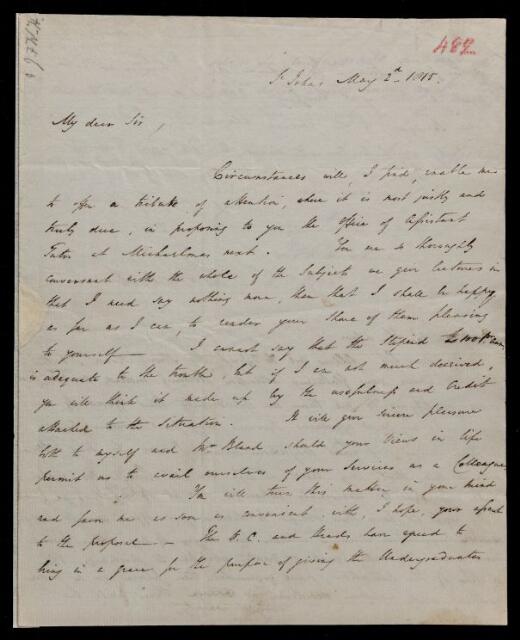 482
St John's May 2d 1815.
My dear Sir,
Circumstances will, I find, enable me
to offer a tribute of attention, where it is most justly and
truly due, in proposing to you the Office of Assistant
Tutor at Michaelmas next. You are so thoroughly
conversant with the whole of the Subjects we give lectures in
that I need say nothing more, than that I shall be happy
as far as I can, to render your Share of them pleasing
to yourself — I cannot say that the Stipend
is adequate to the trouble, but if I am not much deceived,
you will think it made up by the usefulness and Credit
attached to the Situation. It will give sincere pleasure
both to myself and Mr Bland should your Views in life
permit us to avail ourselves of your Services as a Colleague
You will turn this matter in your mind
and favor me as soon as convenient with, I hope, your assent
to the proposal. — The V. C. and Heads have agreed to
bring in a grace for the purpose of giving the Undergraduates